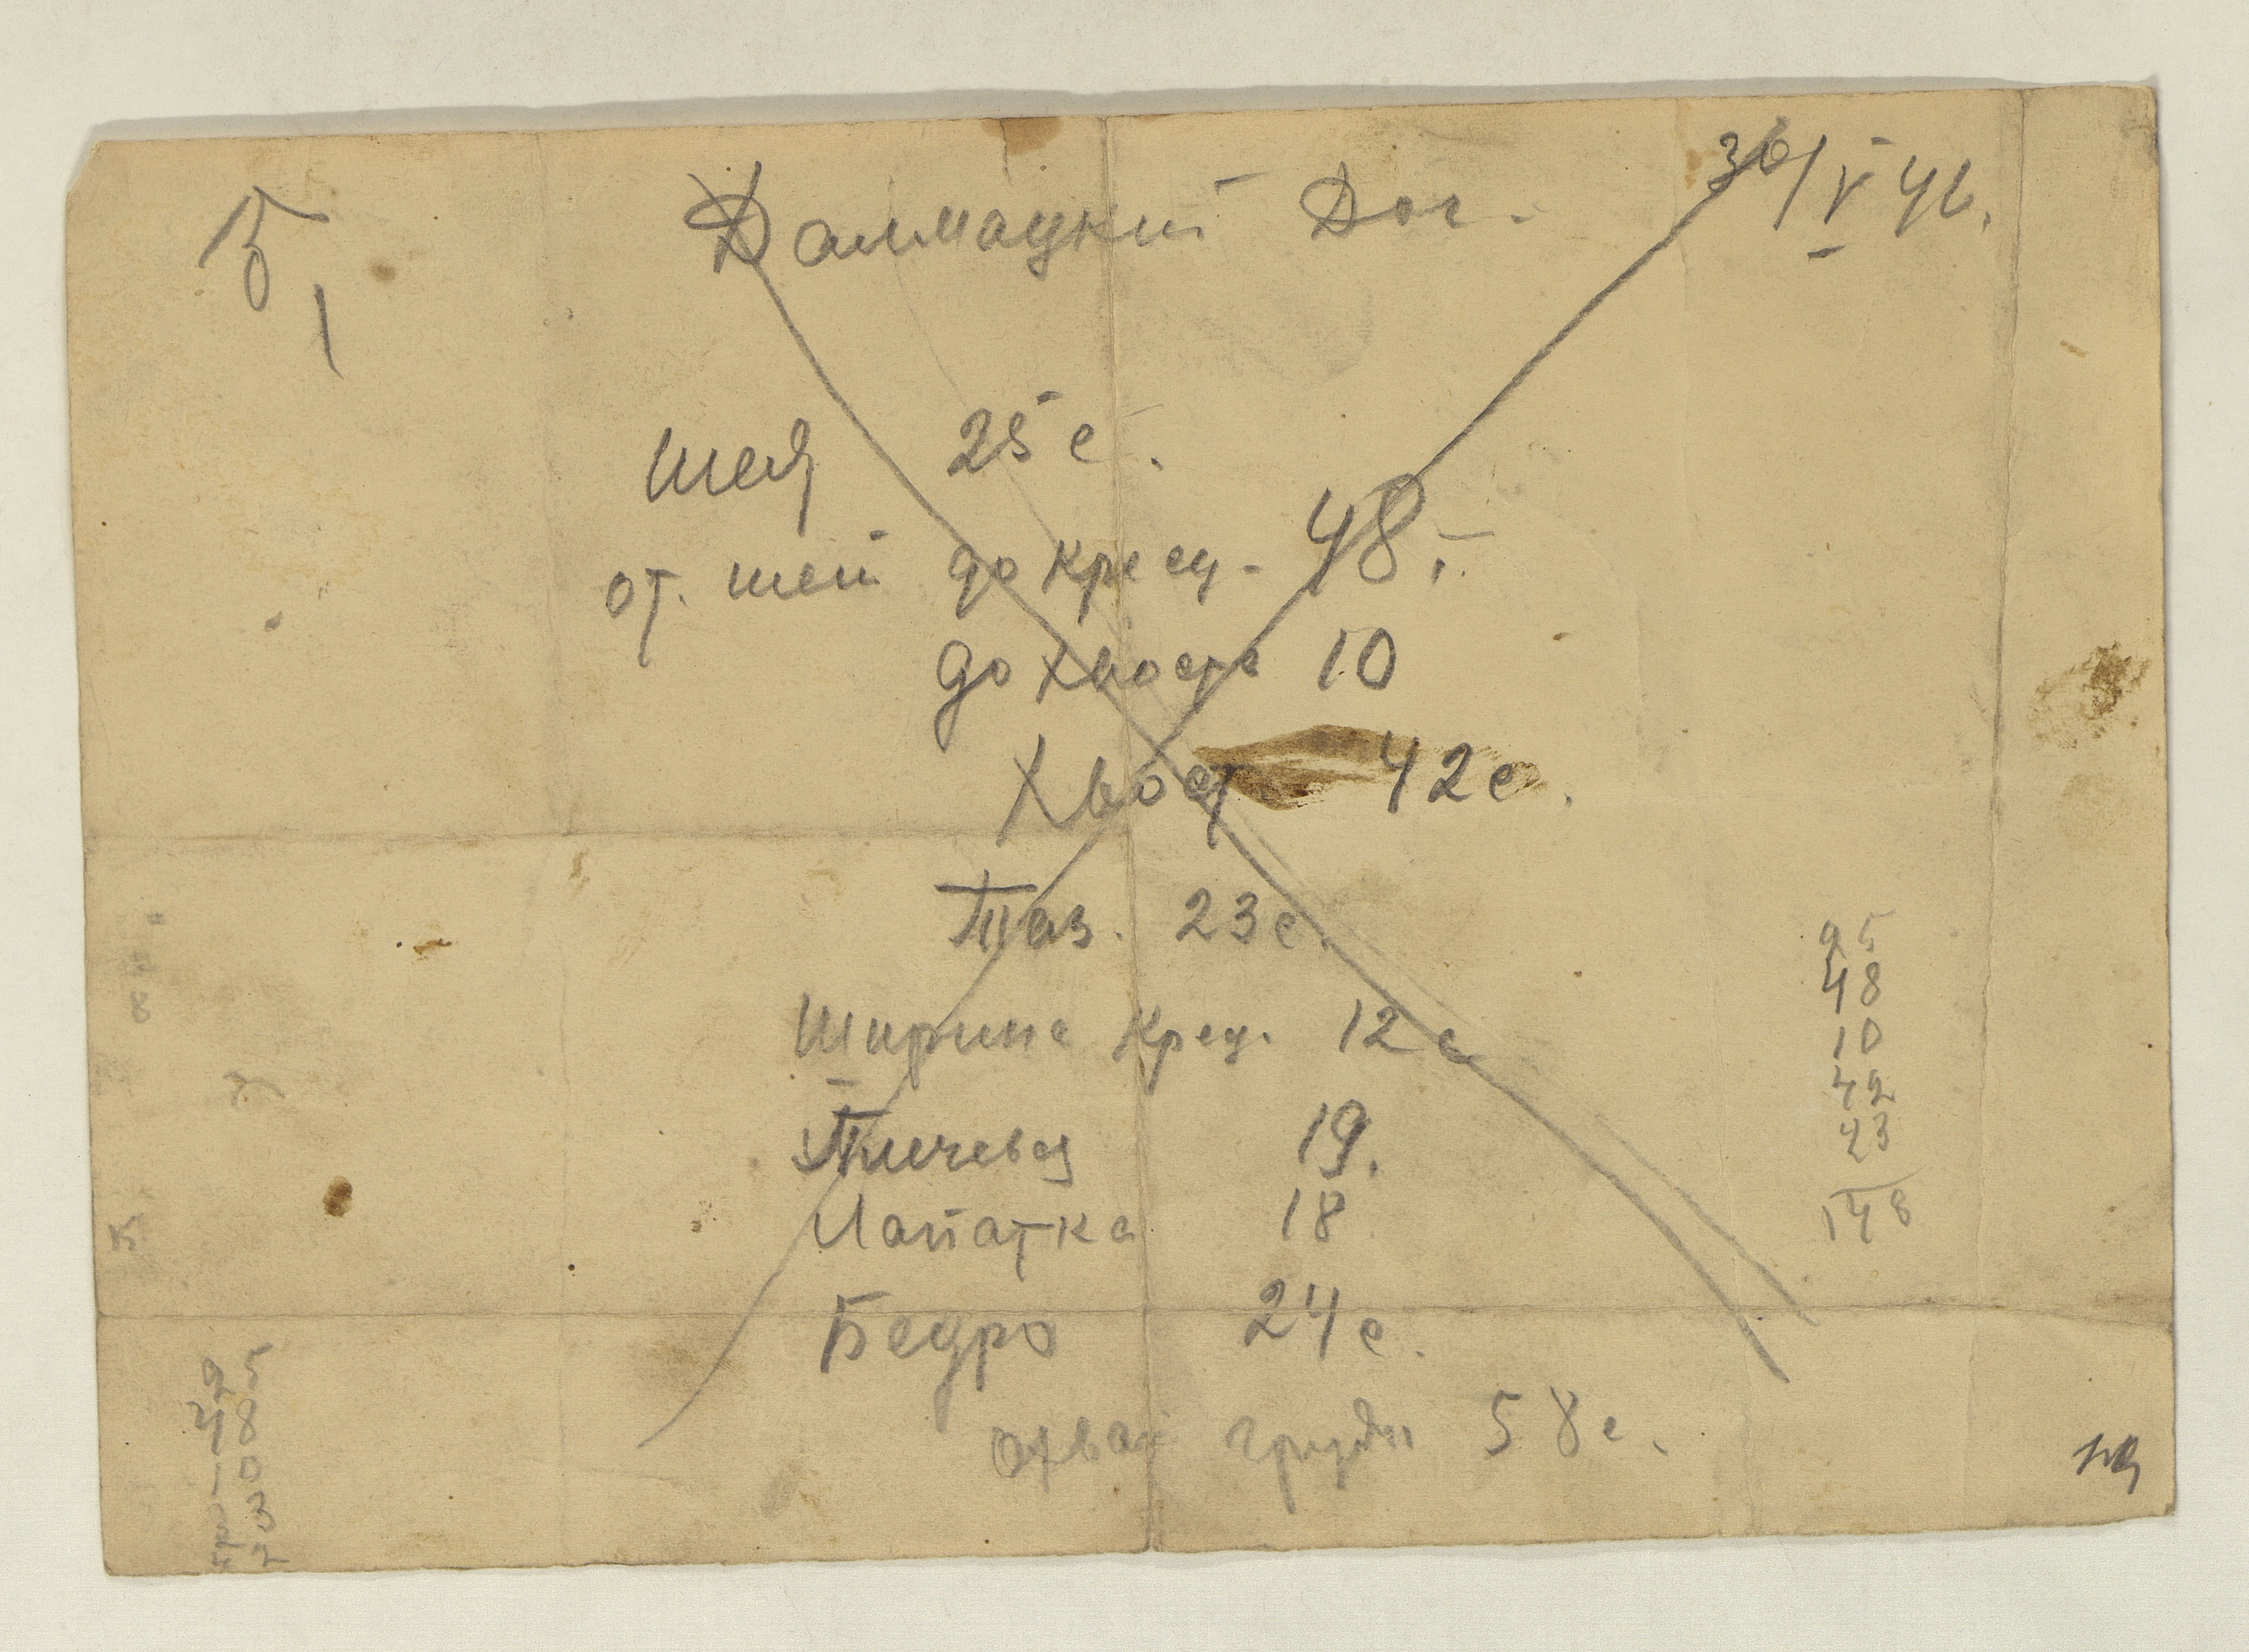 Далмацкий Дог.
30/V 46.
шея 25 с.
от. шеи до кресц - 48.
до хвоста 10
Хвост 42 с.
Таз. 23 с.
Ширина крец. 12 с
Плечевая 19.
Лапатка 18
Бедро 24 с.
охват груди 58 с.
25
48
10
42
23
148